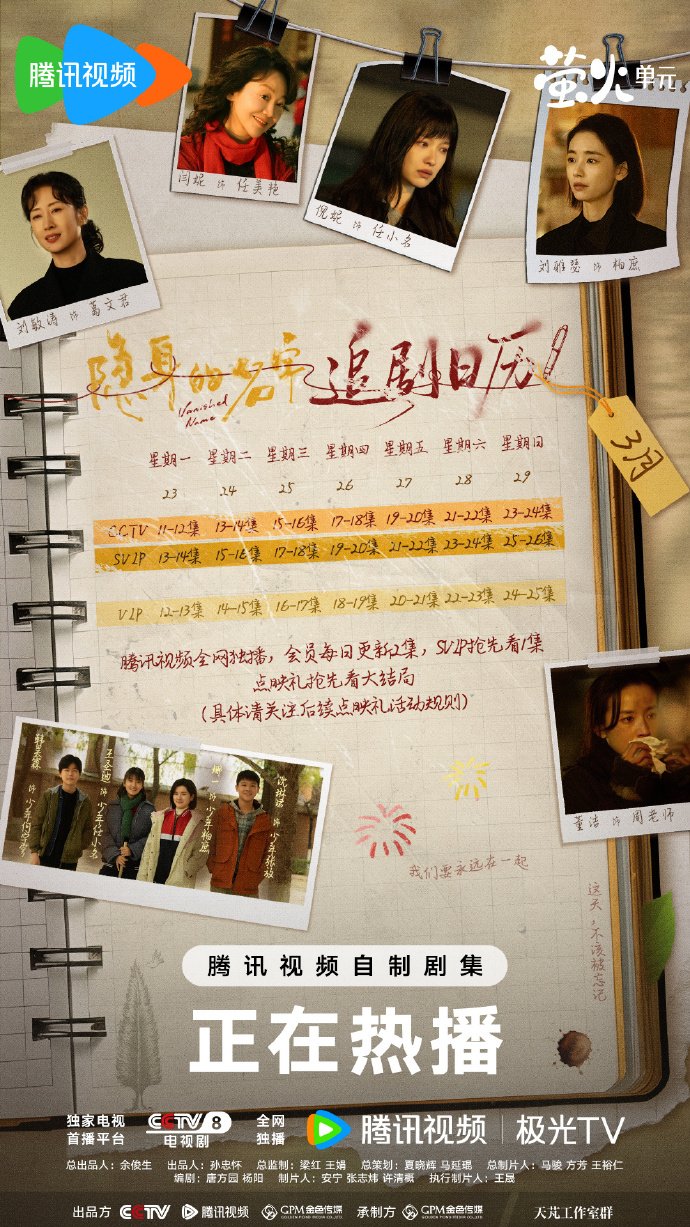 腾讯视频
萤火单元
闫妮 饰 任美艳
倪妮 饰 任小名
刘雅瑟 饰 柏庶
刘敏涛 饰 葛文君
隐身的名字 追剧日历
Vanished Name
3月
星期一 星期二 星期三 星期四 星期五 星期六 星期日
23 24 25 26 27 28 29
CCTV 11-12集 13-14集 15-16集 17-18集 19-20集 21-22集 23-24集
SVIP 13-14集 15-16集 17-18集 19-20集 21-22集 23-24集 25-26集
VIP 12-13集 14-15集 16-17集 18-19集 20-21集 22-23集 24-25集
腾讯视频全网独播，会员每日更新2集，SVIP抢先看1集
点映礼抢先看大结局
(具体请关注后续点映礼活动规则)
董洁 饰 周老师
韩昊霖 饰 少年何宇穹
王圣迪 饰 少年任小名
饰 少年柏庶
饰 少年张放
我们要永远在一起
这天，不该被忘记
腾讯视频自制剧集
正在热播
独家电视首播平台 CCTV 8 电视剧 全网独播 腾讯视频 极光TV
总出品人：余俊生 出品人：孙忠怀 总监制：梁红 王娟 总策划：夏晓辉 马延琨 总制片人：马骏 方芳 王裕仁
编剧：唐方园 杨阳 制片人：安宁 张志炜 许清概 执行制片人：王晟
出品方 CCTV 腾讯视频 GPM金色传媒 GOLDEN POND MEDIA 承制方 GPM金色传媒 GOLDEN POND MEDIA 天芃工作室群